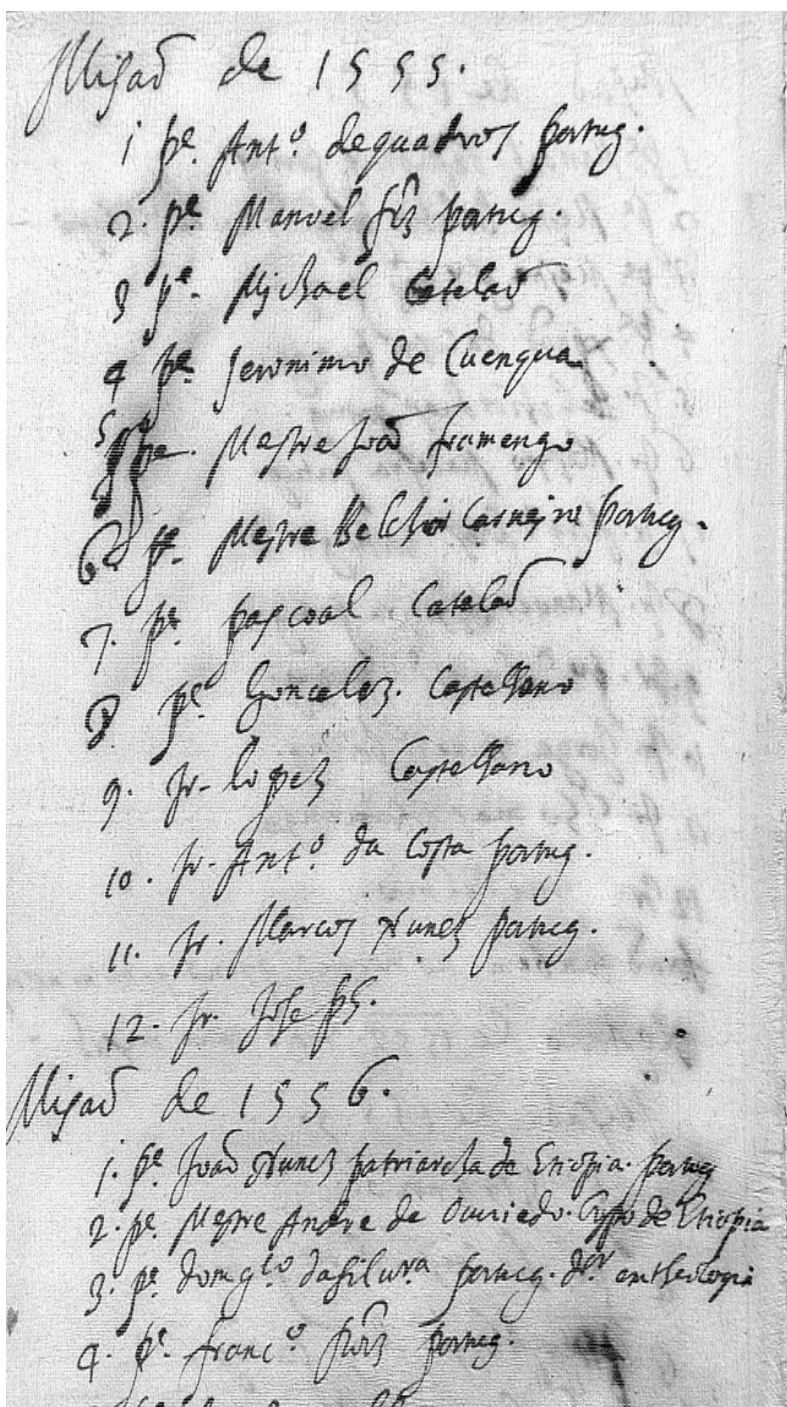 Misaõ de 1555.
1 pe. Antº. de quadros portug.
2. pe. Manuel frz portug.
3 pe. Michael Catelaõ
4 pe. Jeronimo de Cuenqua
5 pe. Mestre Joaõ framengo
6. pe. Mestre Belchior Carneiro portug.
7. pe. pascoal Catelaõ
8 pe. Goncalez. Castellano
9. jr. lopez Castellano
10. jr. Antº. da Costa portug.
11. jr. Marcos Nunez portug.
12. jr. Jose
Misaõ de 1556.
1. pe. Joaõ Nunez patriarcha de Etiopia. portug
2. pe. Mestre Andre de Ouviedo. de Etiopia
3. pe. dom glo dasilvra portug. dor. en theologia
4. pe. francº portug.